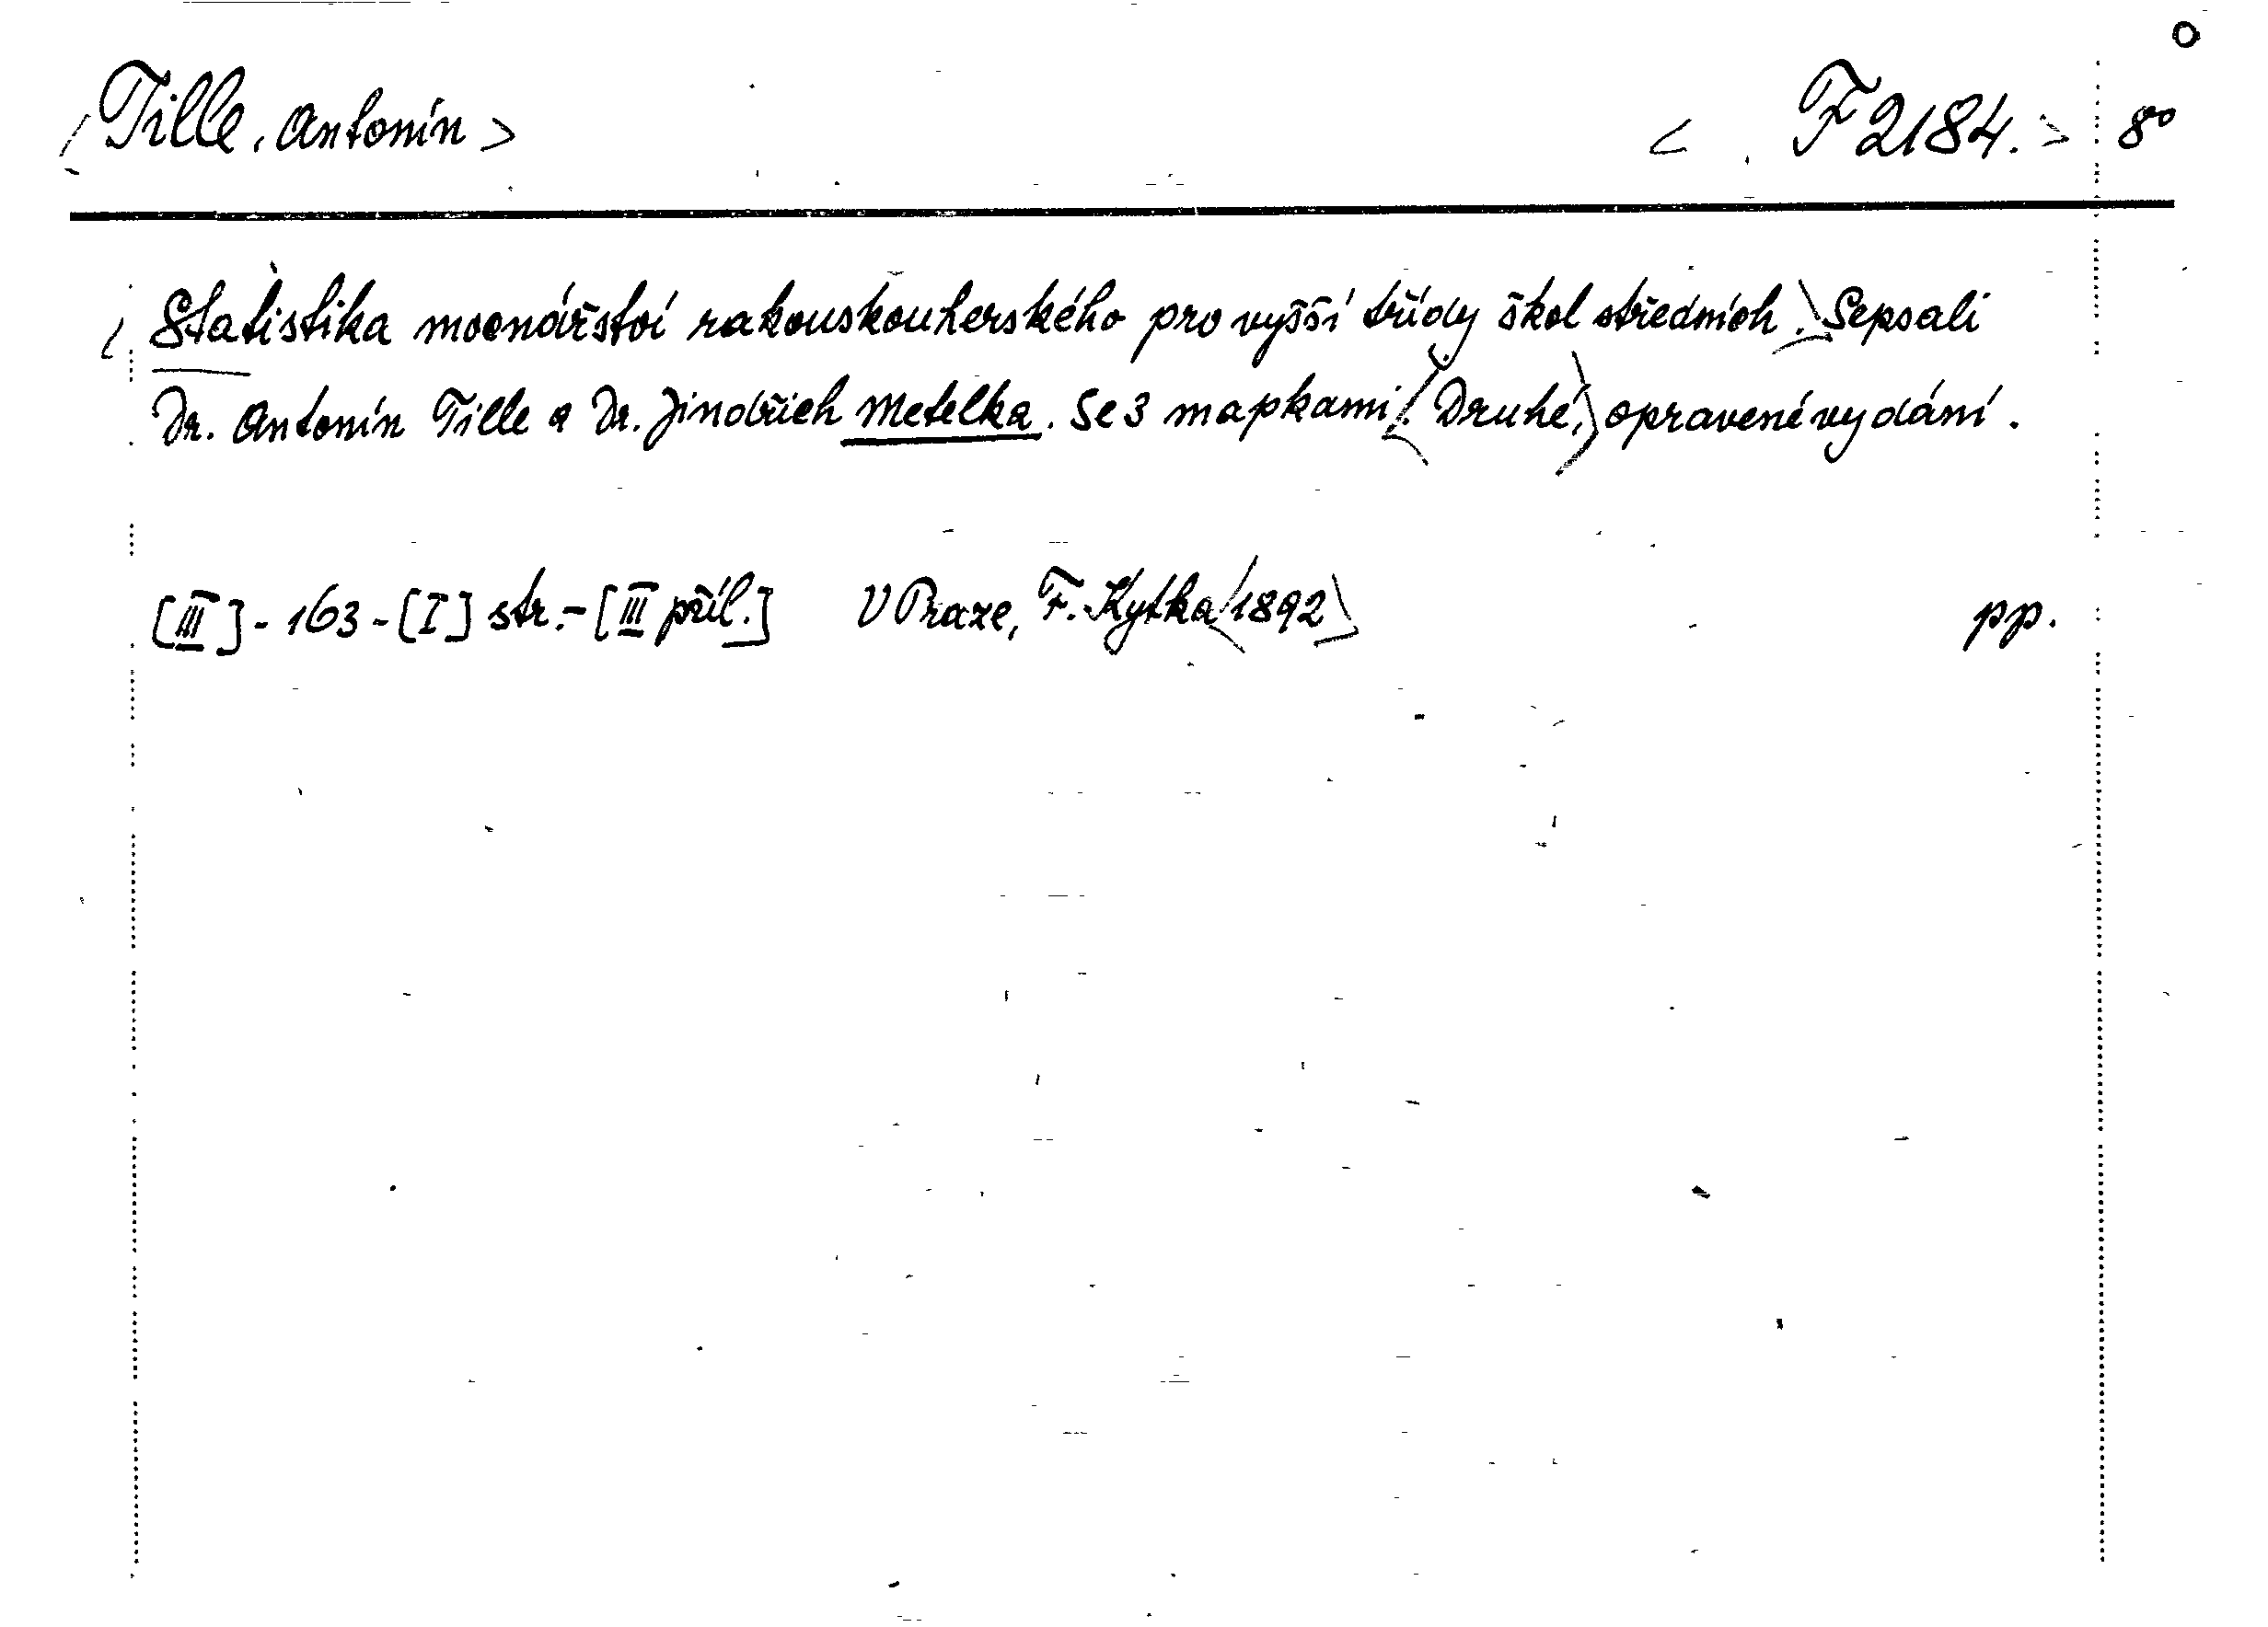 <Tille, Antonín> <F 2184.> 8°
<Statistika mocnářství rakouskouherského pro vyšší třídy škol středních.> Sepsali
Dr. Antonín Tille a Dr. Jindřich Metelka. Se 3 mapkami. <Druhé,> opravené vydání.
[III] - 163 - [I] str. - [III příl.] V Praze, F. Kytka <1892> pp.